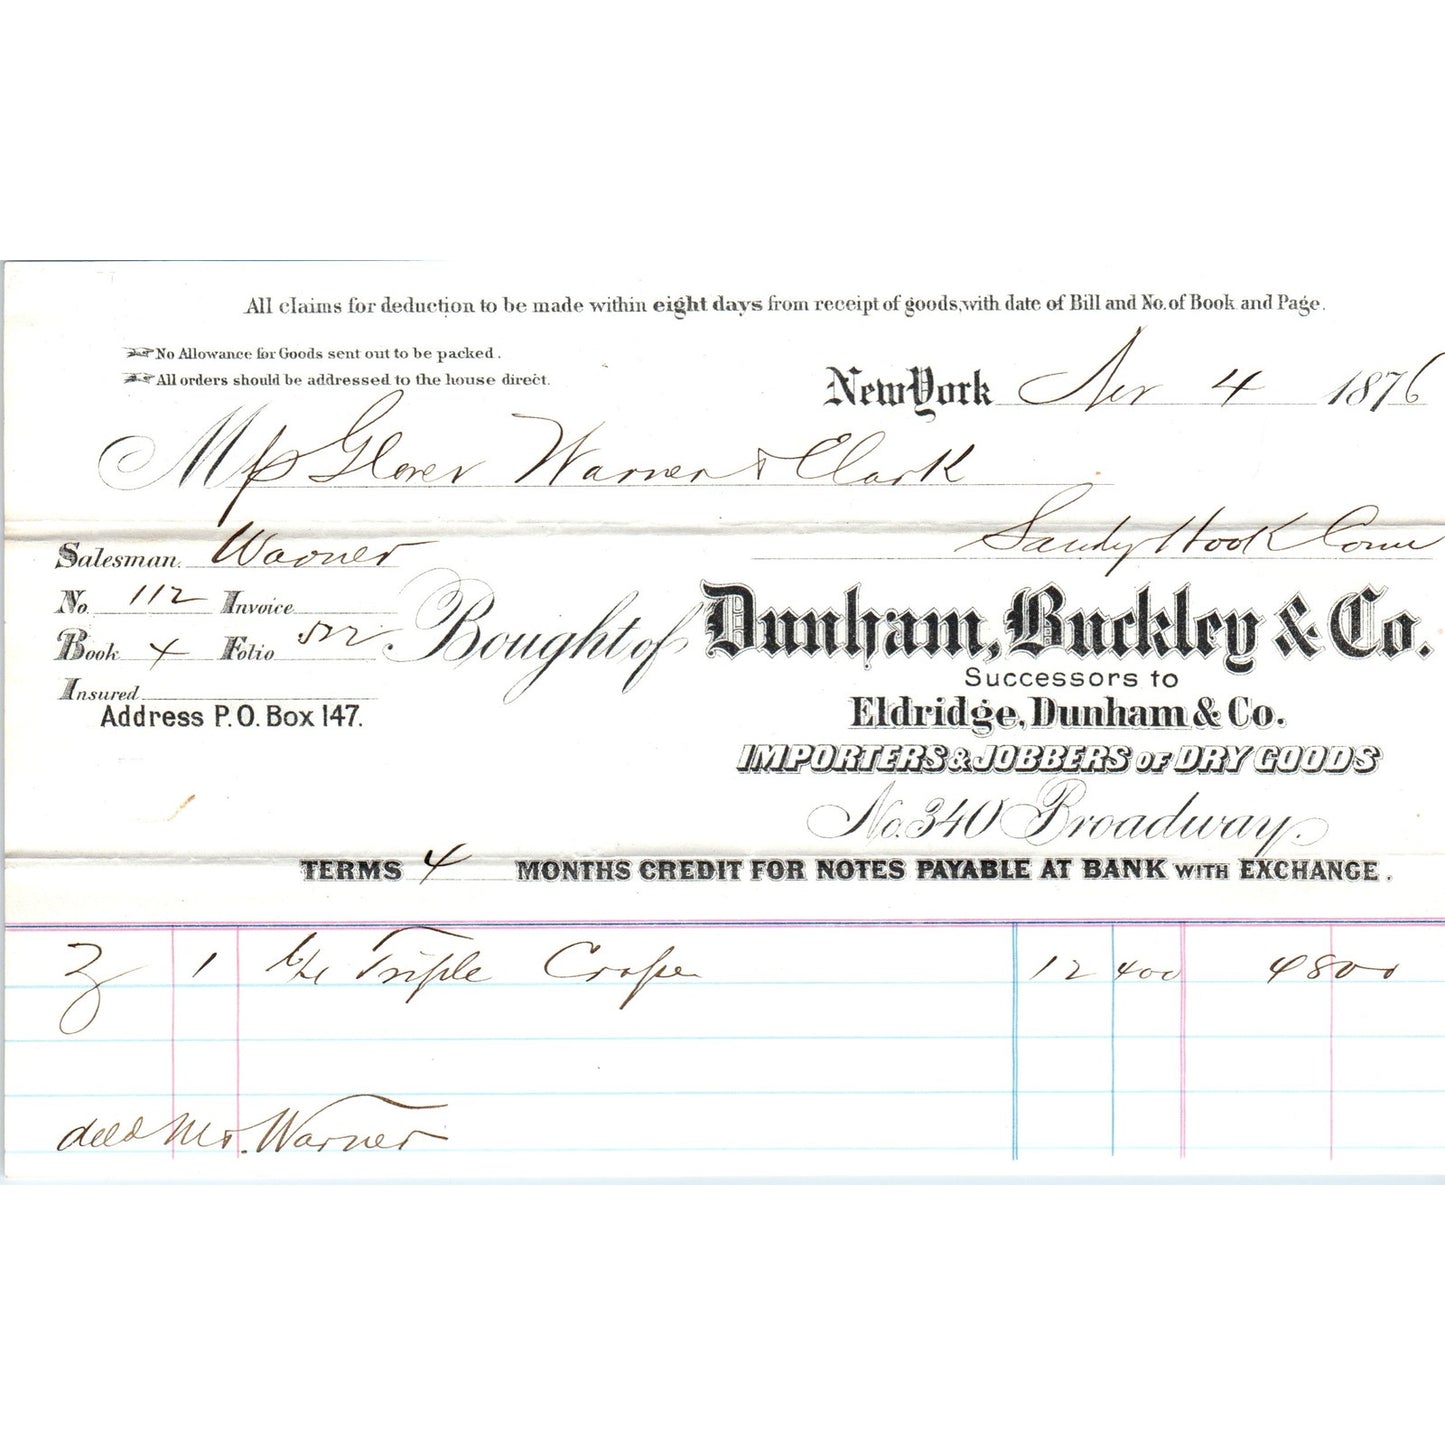 All claims for deduction to be made within eight days from receipt of goods, with date of Bill and No. of Book and Page.
No Allowance for Goods sent out to be packed.
All orders should be addressed to the house direct.
New York Nov 4 1876
Mss Glover Warner & Clark
Sandy Hook Conn
Salesman. Warner
No. 112 Invoice
Book 4 Folio 522
Insured
Address P.O. Box 147.
Bought of Dunham, Buckley & Co.
Successors to
Eldridge, Dunham & Co.
IMPORTERS & JOBBERS OF DRY GOODS
No. 340 Broadway.
TERMS 4 MONTHS CREDIT FOR NOTES PAYABLE AT BANK WITH EXCHANGE.
1 Triple Crape 12 400 4800
deld Mr. Warner